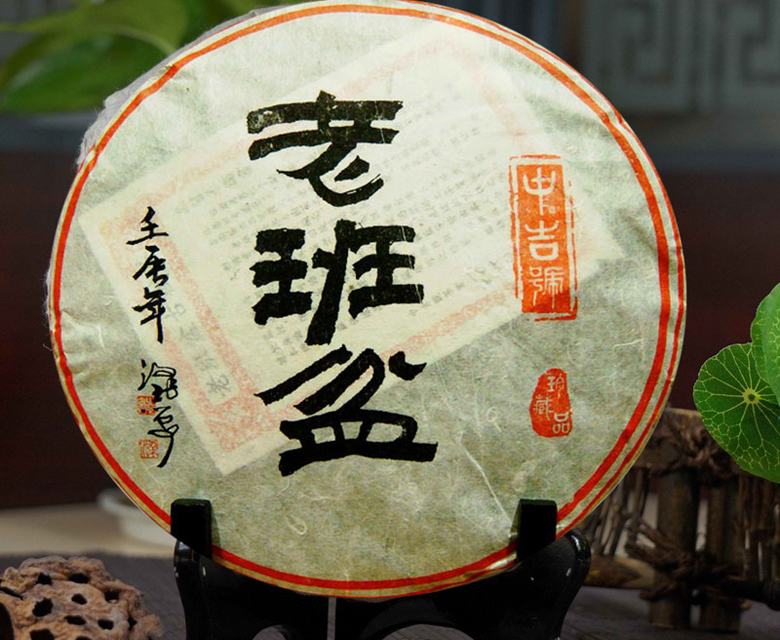 中吉號
珍藏品
老班盆
壬辰年